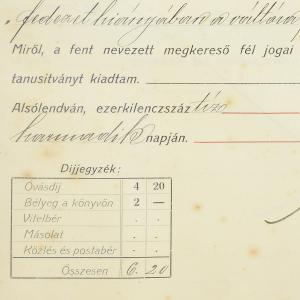 „fedezet hiányában a váltóna
Miről, a fent nevezett megkereső fél jogai
tanusitványt kiadtam.
Alsólendván, ezerkilenczszáz tíz
harmadik napján.
Díjjegyzék:
Óvásdíj 4 20
Bélyeg a könyvön 2 —
Vitelbér . .
Másolat . .
Közlés és postabér . .
Összesen 6. 20